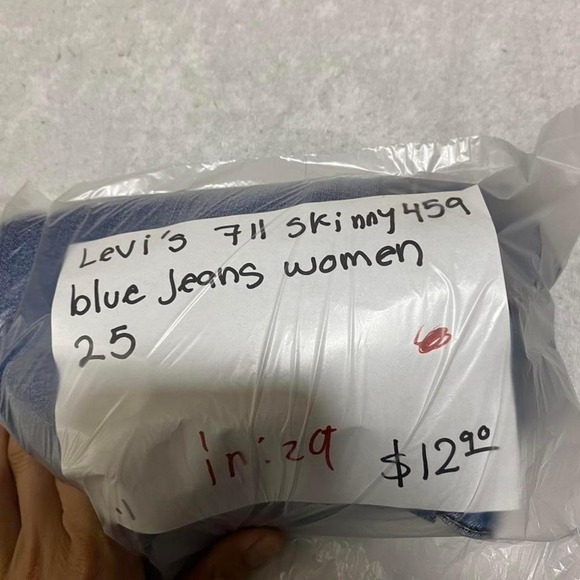 Levi's 711 skinny 459
blue Jeans women
25
in: 29
$12.90